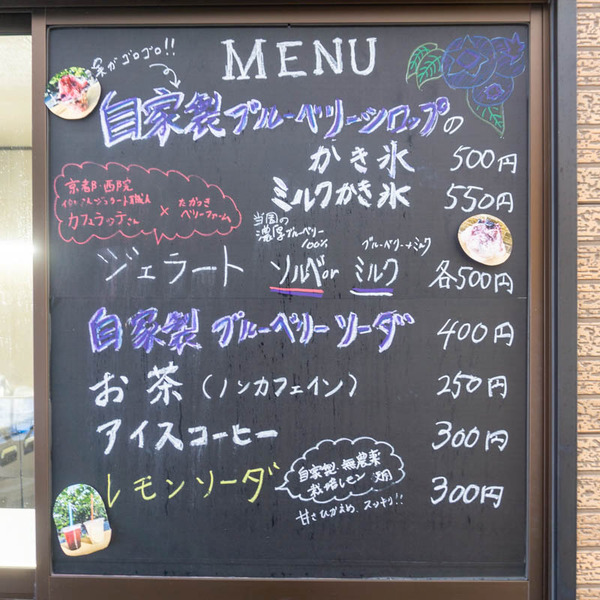 MENU
実がゴロゴロ!!
自家製ブルーベリーシロップの
かき氷 500円
ミルクかき氷 550円
京都・西院
イタリアンジェラート職人
カフェラッテさん
×
たかつき
ベリーファーム
当園の
濃厚ブルーベリー
100%
ブルーベリー+ミルク
ジェラート ソルベor ミルク 各500円
自家製 ブルーベリーソーダ 400円
お茶(ノンカフェイン) 250円
アイスコーヒー 300円
レモンソーダ 300円
自家製・無農薬
栽培レモン
甘さひかえめ、スッキリ!!